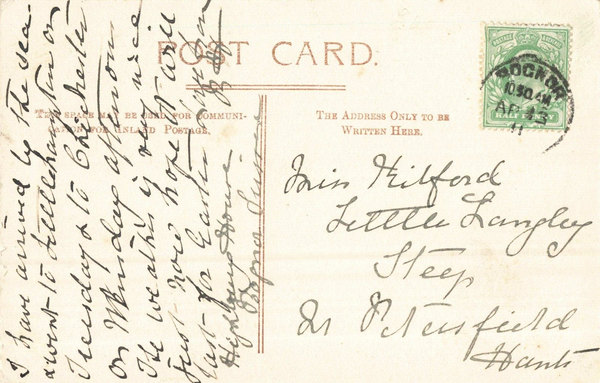 POST CARD.
THIS SPACE MAY BE USED FOR COMMUNI-
CATION FOR INLAND POSTAGE.
THE ADDRESS ONLY TO BE
WRITTEN HERE.
POSTAGE & REVENUE
HALF PENNY
BOGNOR
10.30 AM
AP 13
11
I have arrived by the sea
& went to Littlehampton on
Tuesday & to Chichester
on Wensday afternoon
the weather is very nice
just now hope it will
last for Easter
House
Bognor
Miss Kilford
Little Langley
Steep
Nr Petersfield
Hants